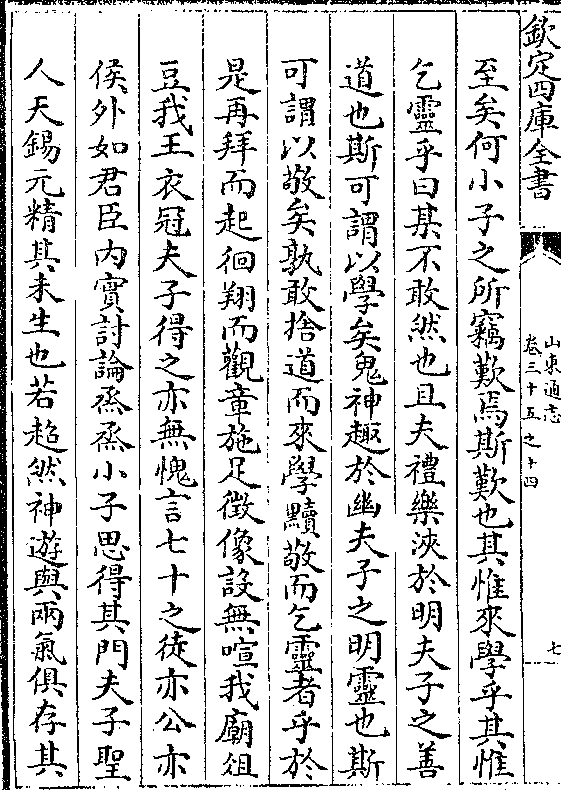 欽定四庫全書
山東通志
卷三十五之十四
七
至矣何小子之所竊歎焉斯歎也其惟來學乎其惟
乞靈乎曰某不敢然也且夫禮樂浹於明夫子之善
道也斯可謂以學矣鬼神趣於幽夫子之明靈也斯
可謂以敬矣孰敢捨道而來學黷敬而乞靈者乎於
是再拜而起徊翔而觀章施足徵像設無喧我廟俎
豆我王衣冠夫子得之亦無愧言七十之徒亦公亦
侯外如君臣内實討論烝烝小子思得其門夫子聖
人天錫元精其未生也若超然神遊與兩氣俱存其